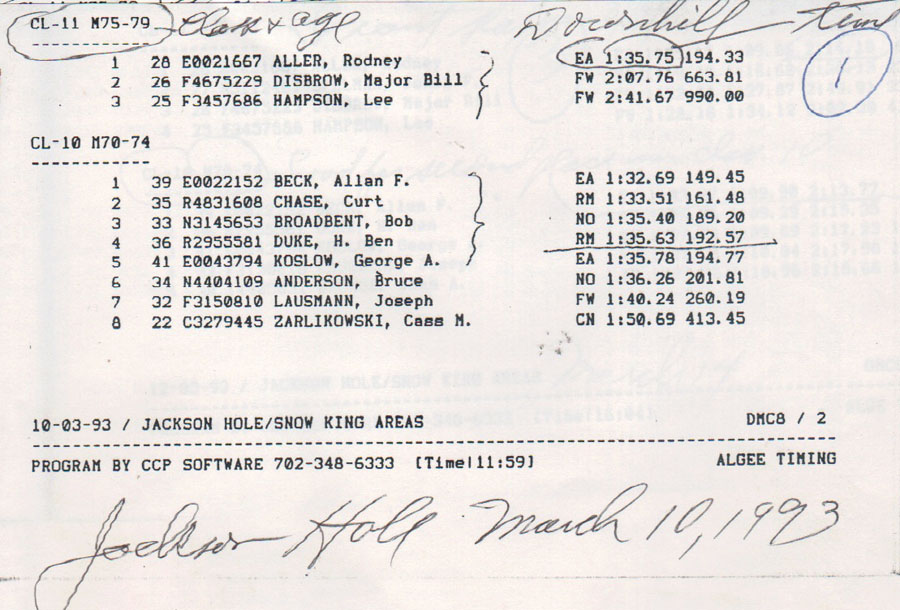 CL-11 M75-79 Class & age Downhill time
------------
1 28 E0021667 ALLER, Rodney EA 1:35.75 194.33
2 26 F4675229 DISBROW, Major Bill FW 2:07.76 663.81
3 25 F3457686 HAMPSON, Lee FW 2:41.67 990.00
1
CL-10 M70-74
------------
1 39 E0022152 BECK, Allan F. EA 1:32.69 149.45
2 35 R4831608 CHASE, Curt RM 1:33.51 161.48
3 33 N3145653 BROADBENT, Bob NO 1:35.40 189.20
4 36 R2955581 DUKE, H. Ben RM 1:35.63 192.57
5 41 E0043794 KOSLOW, George A. EA 1:35.78 194.77
6 34 N4404109 ANDERSON, Bruce NO 1:36.26 201.81
7 32 F3150810 LAUSMANN, Joseph FW 1:40.24 260.19
8 22 C3279445 ZARLIKOWSKI, Cass M. CN 1:50.69 413.45
10-03-93 / JACKSON HOLE/SNOW KING AREAS DMC8 / 2
PROGRAM BY CCP SOFTWARE 702-348-6333 [Time|11:59] ALGEE TIMING
Jackson Hole March 10, 1993